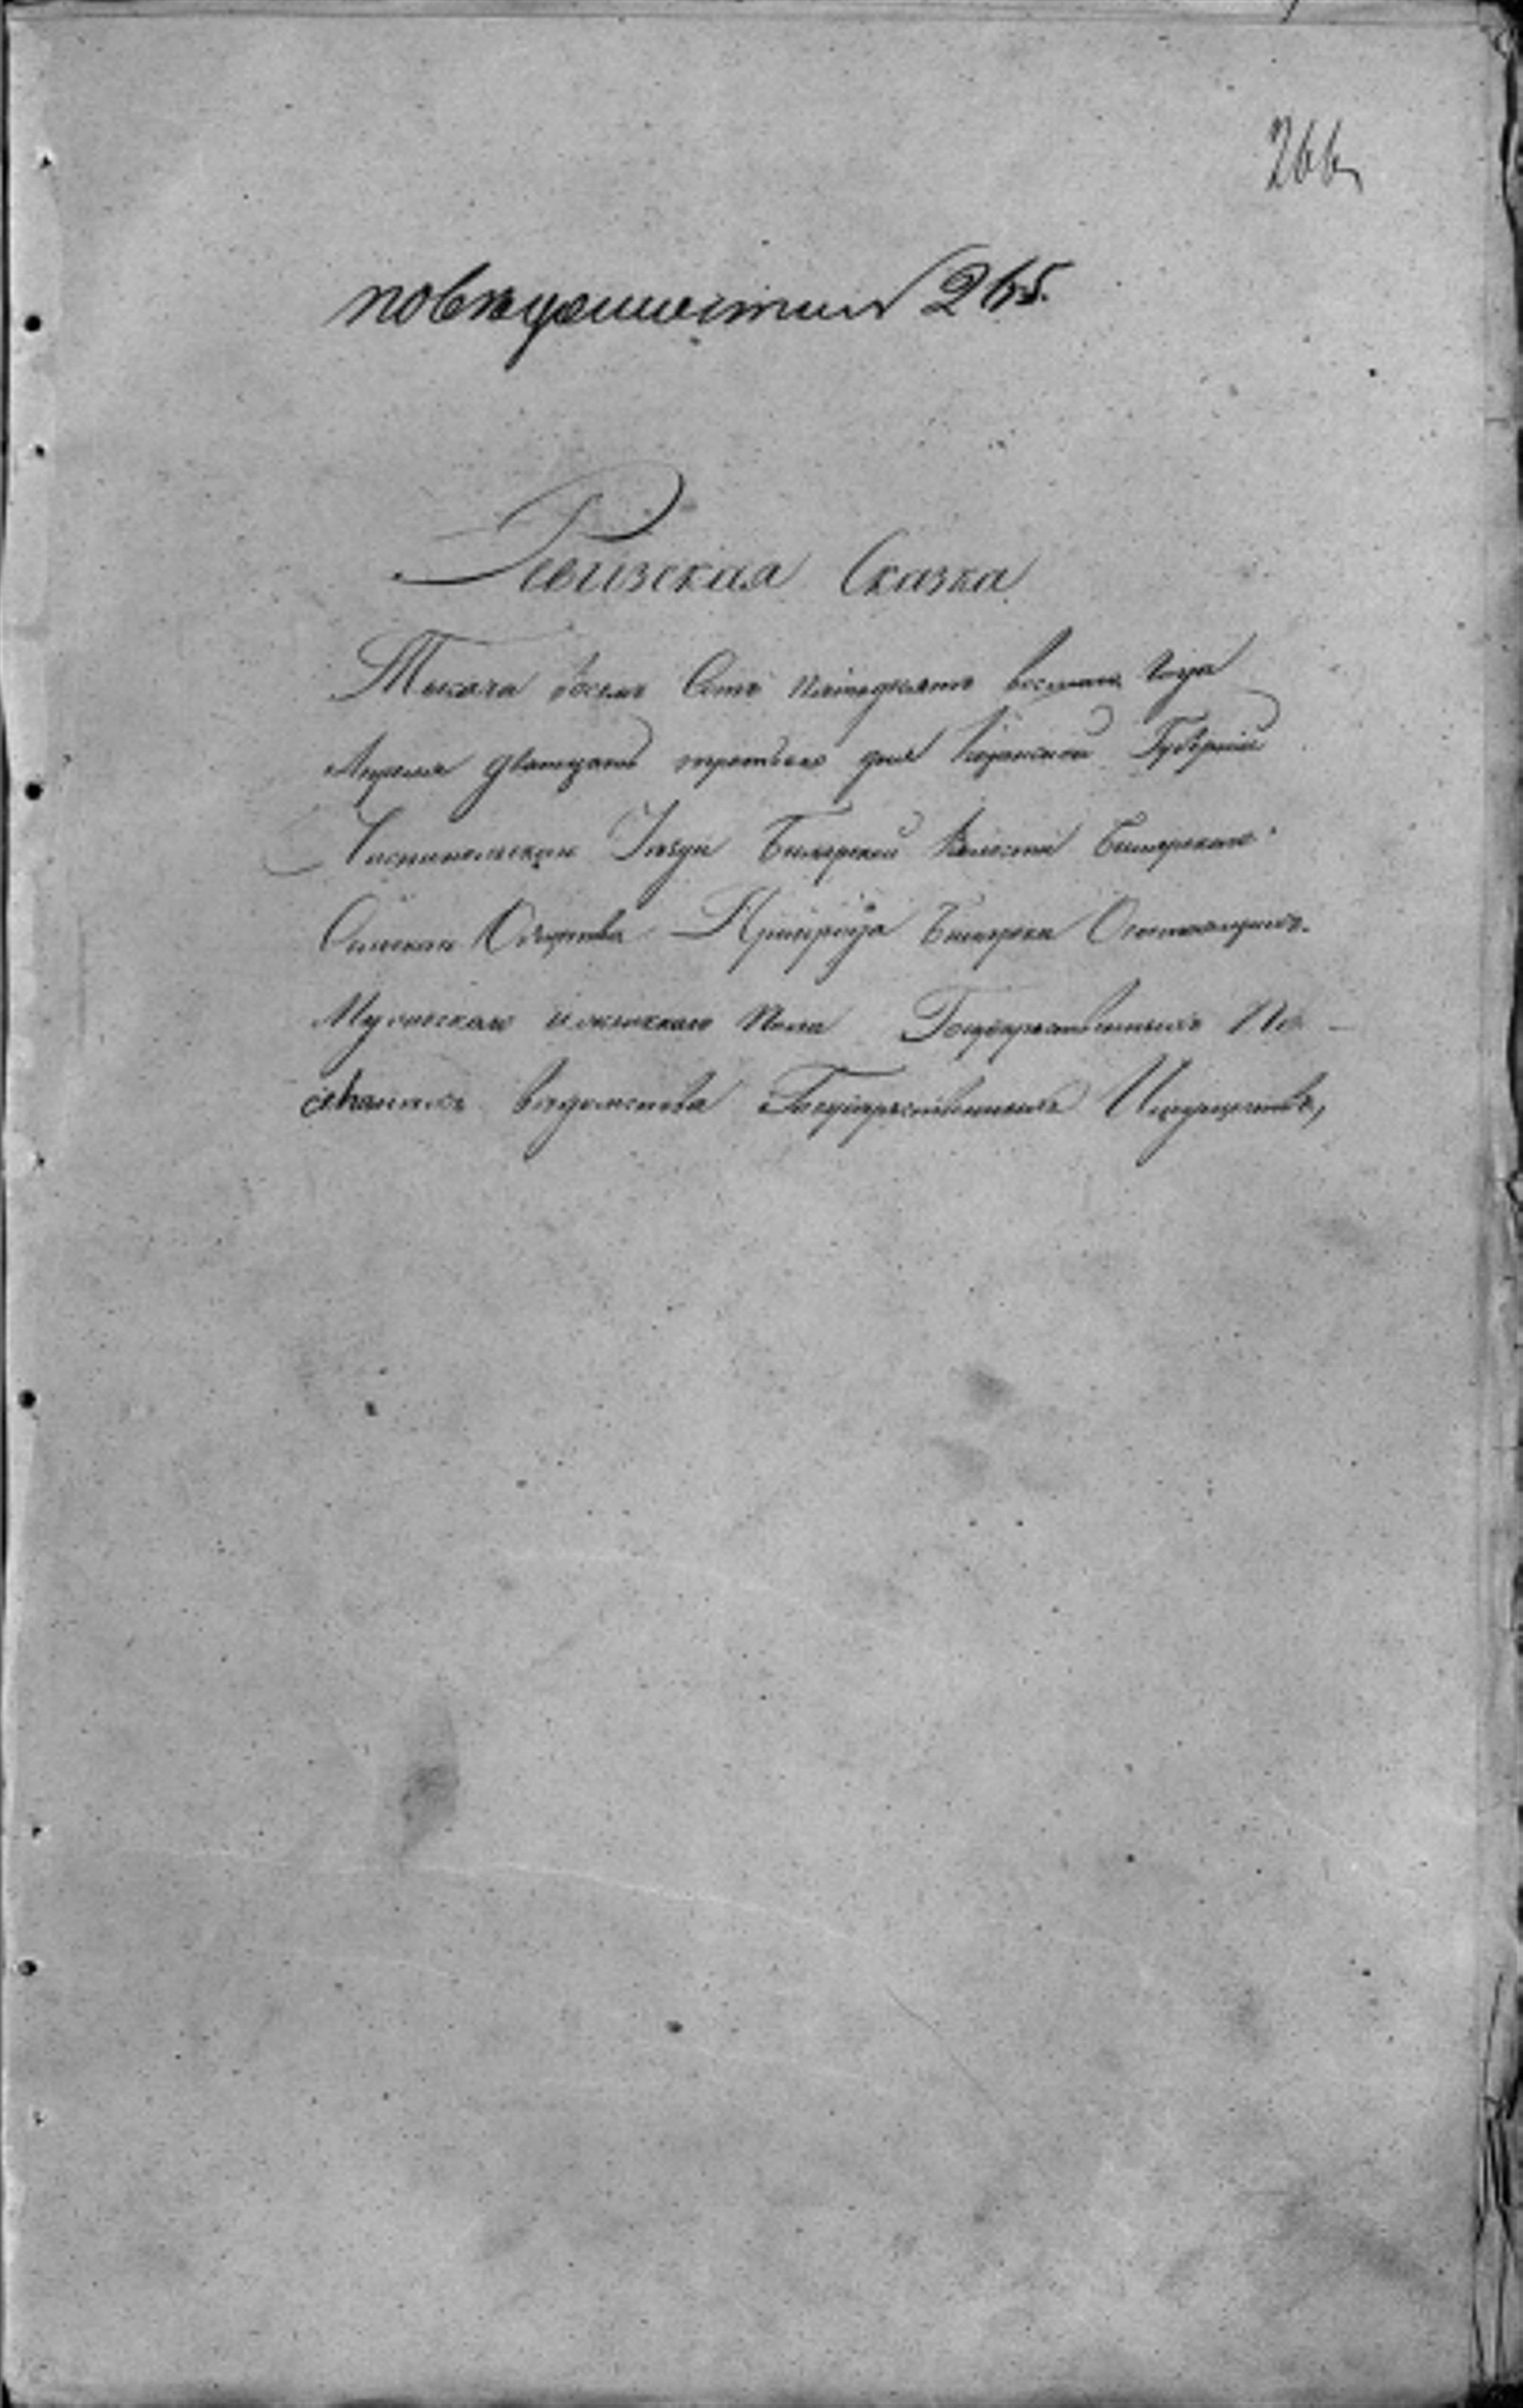 266
265
Ревизская Сказка
Тысяча восемь Сотъ пятьдесятъ восьмаго Года
Апреля дватцать третьяго дня Казанской Губерніи
Чистопольскаго Уезда Билярской Волости Билярскаго
Сельскаго Общества Пригорода Билярска О состоящихъ
Мужескаго и женскаго Пола Государственныхъ По-
селянахъ ведомства Государственныхъ Имуществъ,